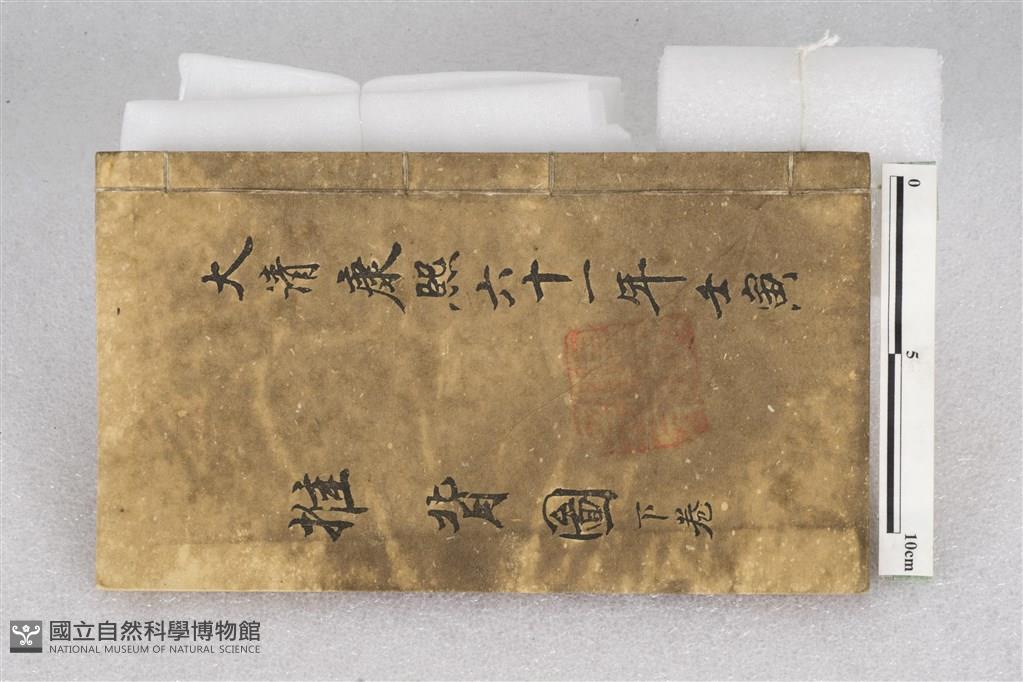 大清康熙六十一年壬寅
推背圖下卷
0
5
10cm
國立自然科學博物館
NATIONAL MUSEUM OF NATURAL SCIENCE